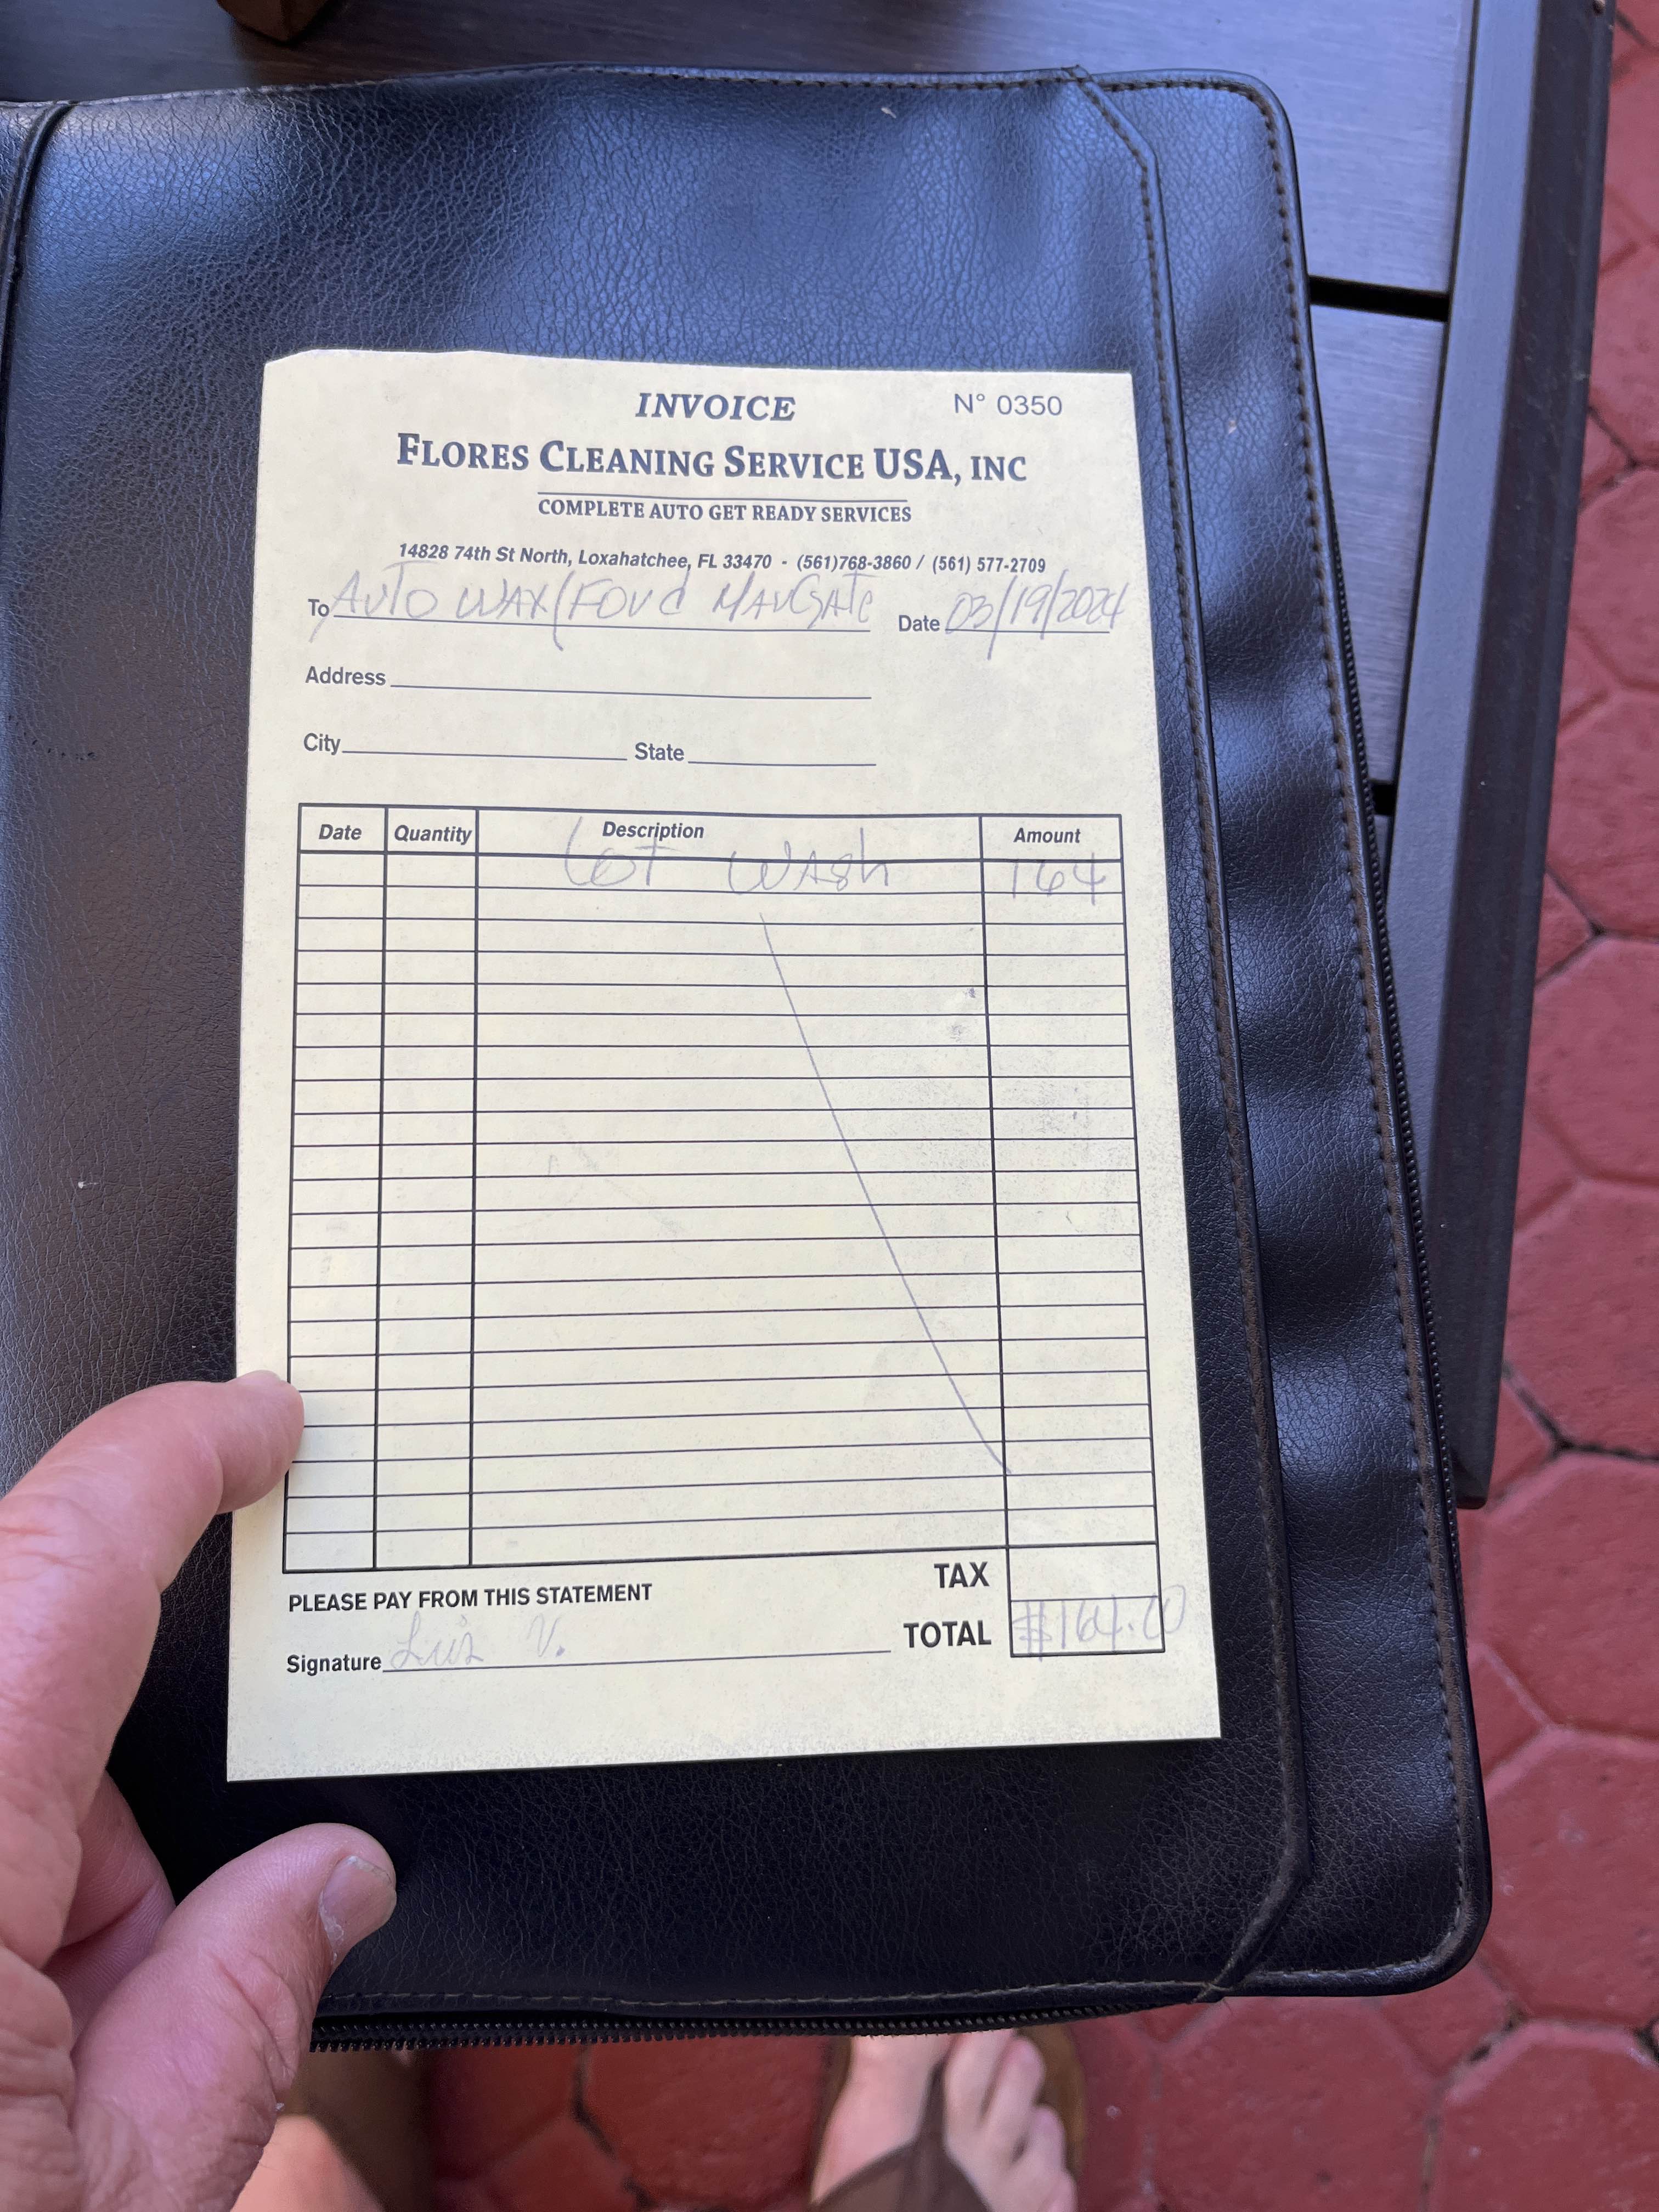 INVOICE N° 0350
FLORES CLEANING SERVICE USA, INC
COMPLETE AUTO GET READY SERVICES
14828 74th St North, Loxahatchee, FL 33470 - (561)768-3860 / (561) 577-2709
To AUTO WAX/FOrd MArGAte Date 03/19/2024
Address
City State
Date Quantity Description Amount
Lot WASh 164
TAX
PLEASE PAY FROM THIS STATEMENT
TOTAL $164.00
Signature Luis V.